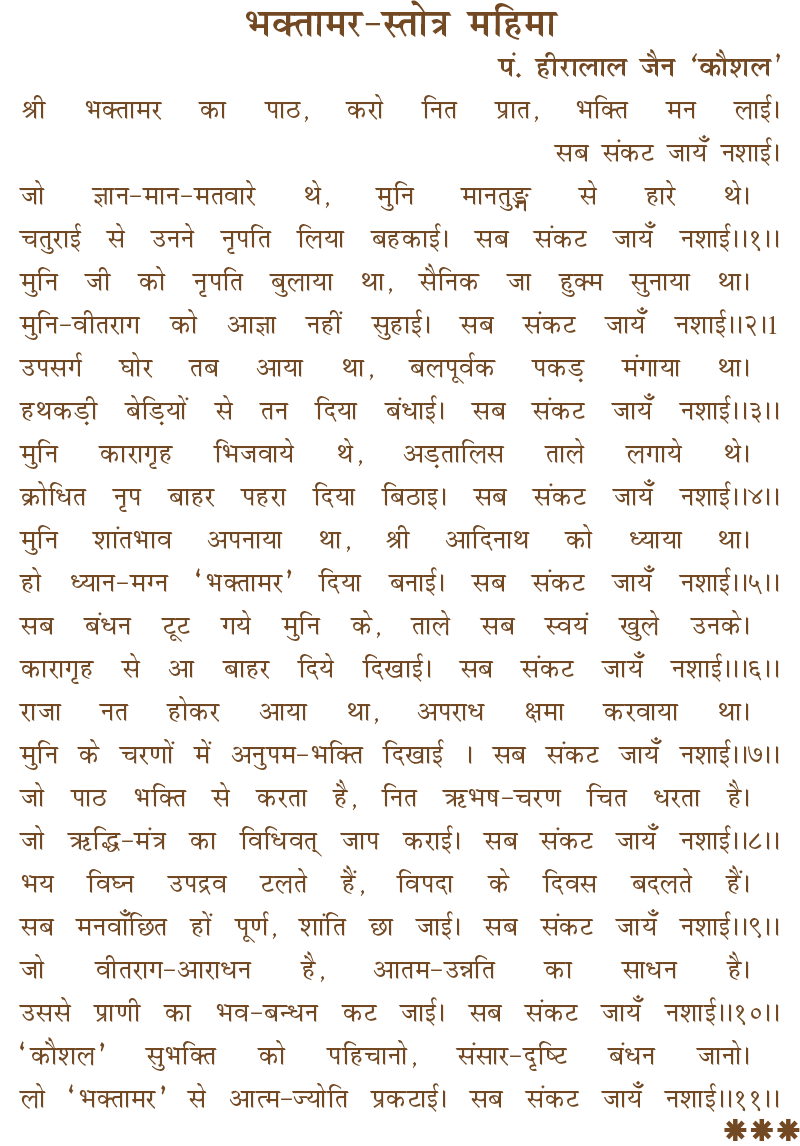 भक्तामर-स्तोत्र महिमा
पं. हीरालाल जैन ‘कौशल’
श्री भक्तामर का पाठ, करो नित प्रात, भक्ति मन लाई।
सब संकट जायँ नशाई।
जो ज्ञान-मान-मतवारे थे, मुनि मानतुङ्ग से हारे थे।
चतुराई से उनने नृपति लिया बहकाई। सब संकट जायँ नशाई।।१।।
मुनि जी को नृपति बुलाया था, सैनिक जा हुक्म सुनाया था।
मुनि-वीतराग को आज्ञा नहीं सुहाई। सब संकट जायँ नशाई।।२।1
उपसर्ग घोर तब आया था, बलपूर्वक पकड़ मंगाया था।
हथकड़ी बेड़ियों से तन दिया बंधाई। सब संकट जायँ नशाई।।३।।
मुनि कारागृह भिजवाये थे, अड़तालिस ताले लगाये थे।
क्रोधित नृप बाहर पहरा दिया बिठाइ। सब संकट जायँ नशाई।।४।।
मुनि शांतभाव अपनाया था, श्री आदिनाथ को ध्याया था।
हो ध्यान-मग्न ‘भक्तामर’ दिया बनाई। सब संकट जायँ नशाई।।५।।
सब बंधन टूट गये मुनि के, ताले सब स्वयं खुले उनके।
कारागृह से आ बाहर दिये दिखाई। सब संकट जायँ नशाई।।।६।।
राजा नत होकर आया था, अपराध क्षमा करवाया था।
मुनि के चरणों में अनुपम-भक्ति दिखाई । सब संकट जायँ नशाई।।७।।
जो पाठ भक्ति से करता है, नित ऋभष-चरण चित धरता है।
जो ऋद्धि-मंत्र का विधिवत् जाप कराई। सब संकट जायँ नशाई।।८।।
भय विघ्न उपद्रव टलते हैं, विपदा के दिवस बदलते हैं।
सब मनवाँछित हों पूर्ण, शांति छा जाई। सब संकट जायँ नशाई।।९।।
जो वीतराग-आराधन है, आतम-उन्नति का साधन है।
उससे प्राणी का भव-बन्धन कट जाई। सब संकट जायँ नशाई।।१०।।
‘कौशल’ सुभक्ति को पहिचानो, संसार-दृष्टि बंधन जानो।
लो ‘भक्तामर’ से आत्म-ज्योति प्रकटाई। सब संकट जायँ नशाई।।११।।
***